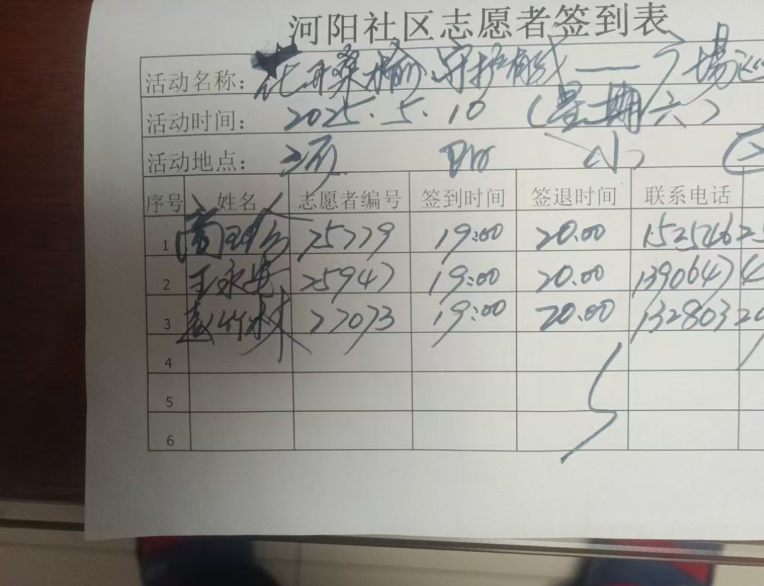 河阳社区志愿者签到表
活动名称: 花开桑榆、守护有我——广场巡
活动时间: 2025.5.10 (星期六)
活动地点: 河阳小区
序号 姓名 志愿者编号 签到时间 签退时间 联系电话
1 25779 19:00 20:00 1525462
2 王永建 25947 19:00 20:00 13906474
3 赵竹林 27073 19:00 20:00 1328032
4
5
6